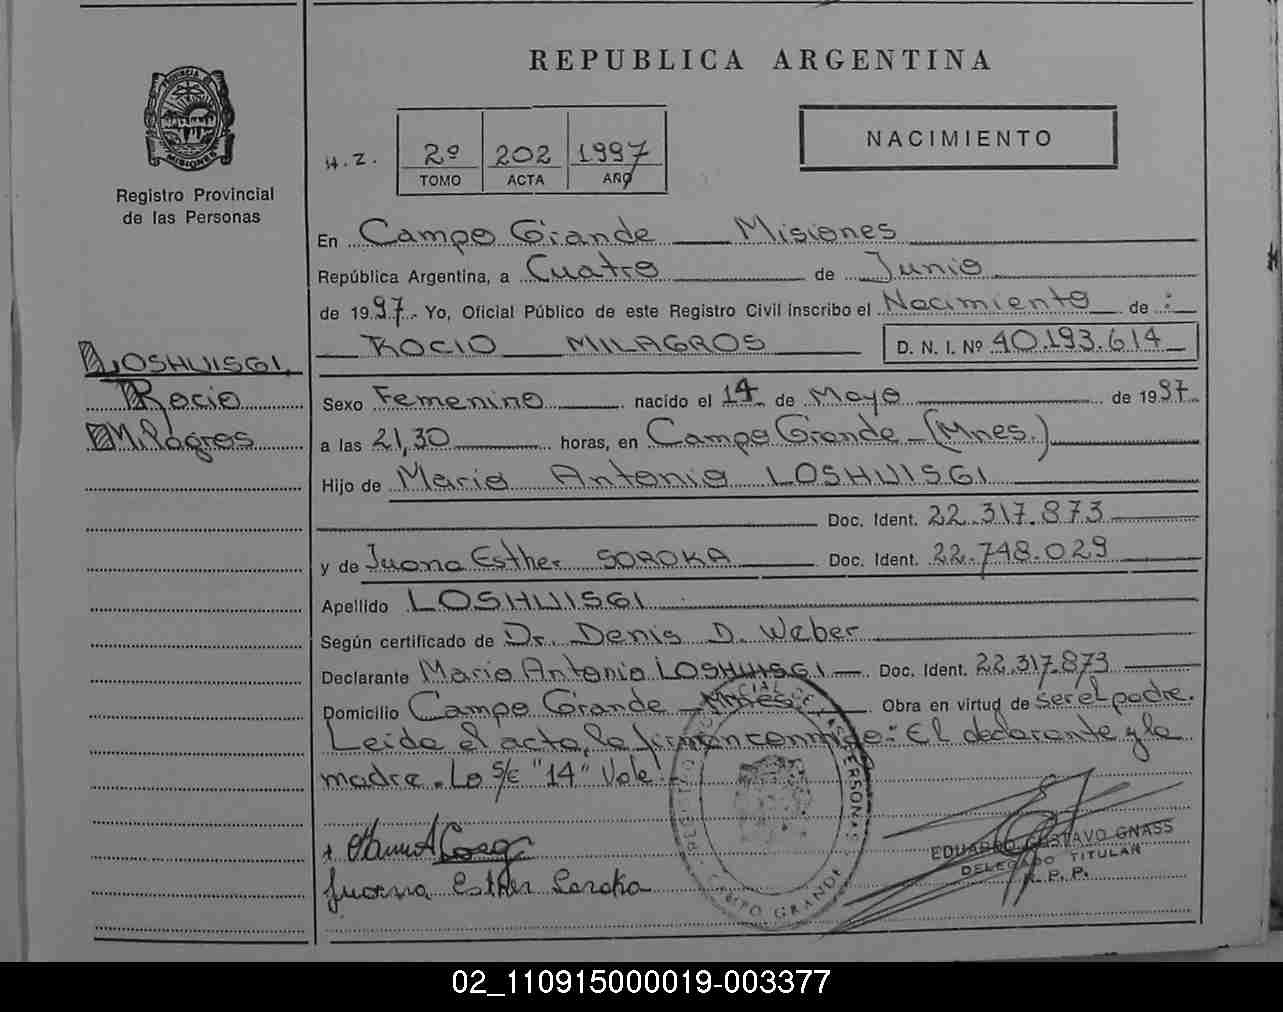 REPUBLICA ARGENTINA
PROVINCIA DE
MISIONES
Registro Provincial
de las Personas
H.Z.
2º 202 1997
TOMO ACTA AÑO
NACIMIENTO
En Campo Grande Misiones
República Argentina, a Cuatro de Junio
de 1997.- Yo, Oficial Público de este Registro Civil inscribo el Nacimiento de :
ROCIO MILAGROS D. N. I. Nº 40.193.614
LOSHUISGI,
Rocio
Milagros
Sexo Femenino nacido el 14 de Mayo de 1997
a las 21,30 horas, en Campo Grande - (Mnes.)
Hijo de Mario Antonio LOSHUISGI
Doc. Ident. 22.317.873
y de Juana Esther SOROKA Doc. Ident. 22.748.029
Apellido LOSHUISGI
Según certificado de Dr. Denis D. Weber
Declarante Mario Antonio LOSHUISGI Doc. Ident. 22.317.873
Domicilio Campo Grande - Mnes. Obra en virtud de ser el padre.
Leida el acta, la firman conmigo: El declarante y la
madre. Lo s/e "14" Vale!-
Juana Esther Soroka
EDUARDO GUSTAVO GNASS
DELEGADO TITULAR
R. P. P.
CAMPO GRANDE
02_110915000019-003377